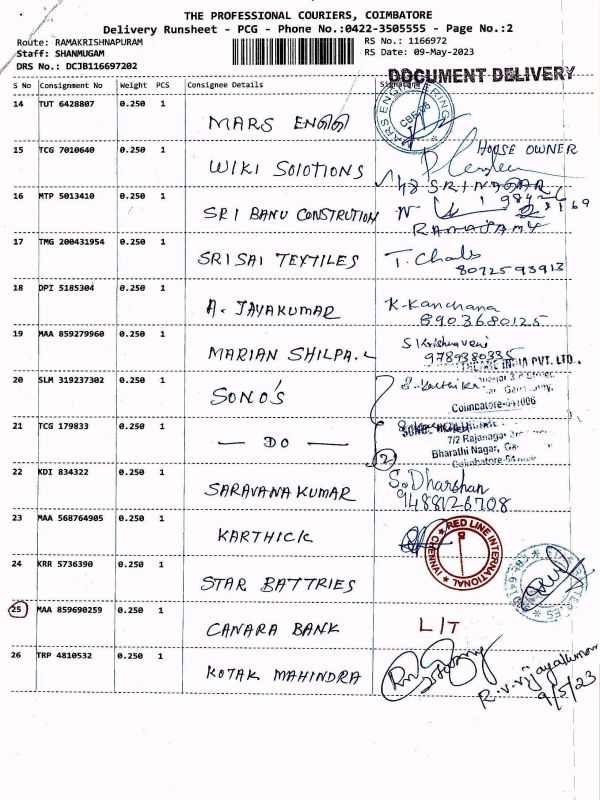 THE PROFESSIONAL COURIERS, COIMBATORE
Delivery Runsheet - PCG - Phone No.:0422-3505555 - Page No.:2
Route: RAMAKRISHNAPURAM RS No.: 1166972
Staff: SHANMUGAM RS Date: 09-May-2023
DRS No.: DCJB116697202 DOCUMENT DELIVERY
S No Consignment No Weight PCS Consignee Details Signature
14 TUT 6428807 0.250 1 MARS
15 TCG 7010640 0.250 1 WIKI SOLOTIONS HOUSE OWNER
48 SRINAGAR
16 MTP 5013410 0.250 1 SRI BANU CONSTRUTION
RAMASAMY
17 TMG 200431954 0.250 1 SRISAI TEXTILES T. Chals
8072593913
18 DPI 5185304 0.250 1 A. JAYAKUMAR K-Kanchana
8903680125
19 MAA 859279960 0.250 1 MARIAN SHILPA.L S Krishnaveni
9789380335
INDIA PVT. LTD.,
20 SLM 319237302 0.250 1 SONO'S
Coimbatore-641006
21 TCG 179833 0.250 1 — DO —
7/2 Rajanagar
Bharathi Nagar,
2
22 KDI 834322 0.250 1 SARAVANA KUMAR S. Dharshan
9488126708
23 MAA 568764905 0.250 1 KARTHICK
RED LINE INTERNATIONAL
CHENNAI
24 KRR 5736390 0.250 1 STAR BATTRIES
25 MAA 859690259 0.250 1 CANARA BANK L/T
26 TRP 4810532 0.250 1 KOTAK MAHINDRA
R.V. Vijayakumar
9/5/23